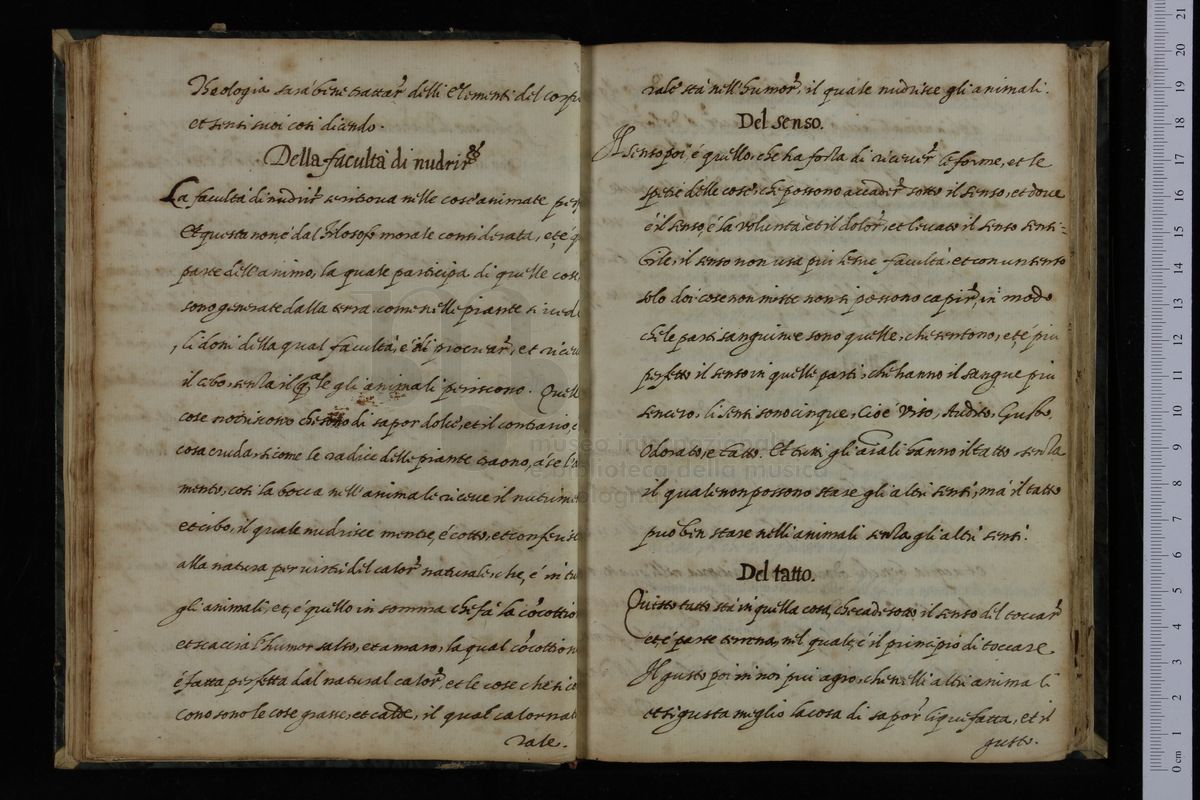 Theologia sarà bene trattar delli Elementi del corpo
et sensi suoi così dicendo.
Della facultà di nudrir
La facultà di nudrir se ritrova nelle cose animate
Et questa non è dal filosofo morale considerata, et è
parte dell'animo, la quale participa di quelle cose
sono generate dalla terra, come nelle piante si
li doni della qual facultà, è di procrear, et
il cibo, senza il qle gli animali periscono. Quelle
cose notriscono che sono di sapor dolce, et il contrario,
cosa cruda, sì come le radice delle piante traono, a se
mento, così la bocca nell'animale riceve il nutrime
et cibo, il quale nudrisce mentre, è cotto, et
alla natura per virtù del calor naturale, che, è in
gli animali, et, è quello in somma che fà la cōcottio
et scaccia l'humor salso, et amaro, la qual cōcottion
è fatta perfetta dal natural calor, et le cose che si
cono sono le cose grasse, et calde, il qual calor nat
rale.
rale stà nell'humor, il quale nudrisce gli animali.
Del senso.
Il senso poi, è quello, che ha forza di ricever le forme, et le
spetie delle cose, che possono accader sotto il senso, et dove
è il senso, è la voluntà, et il dolor, et levato il senso sensi=
bile, il senso non usa più le sue facultà, et con un senso
solo doi cose non miste non si possono capir, in modo
che le parti sanguinee sono quelle, che sentono, et è più
perfetto il senso in quelle parti, che hanno il sangue più
sencero, li sensi sono cinque, Cioè Viso, Audito, Gusto,
Odorato, e tatto. Et tutti gli aīali hanno il tatto senza
il quale non possono stare gli altri sensi, mà il tatto
può ben stare nelli animali senza gli altri sensi.
Del tatto.
Questo tatto stà in quella cosa, che cade sotto il senso del toccar
et è parte terrena, nel quale, è il principio di toccare
Il gusto poi in noi più agro, che nelli altri animali
et si gusta meglio la cosa di sapor liquefatta, et il
gusto.
museo internazionale
e biblioteca della musica
bologna